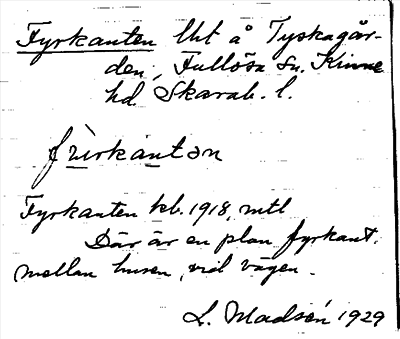 Fyrkanten lht å Tyskagår-
den, Fullösa sn. Kinne
hd Skarab. l.
fùrkantən
Fyrkanten kb. 1918, mtl
Där är en plan fyrkant.
mellan husen, vid vägen.
L. Madsén 1929